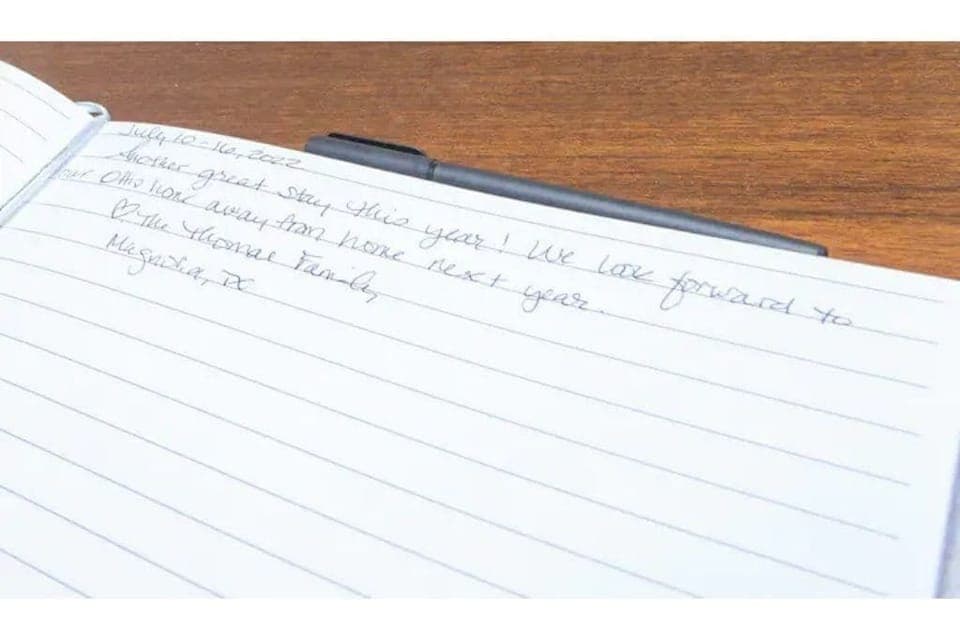 July 10-16, 2022
Another great stay this year! We look forward to
our Ohio home away from home next year.
♡ The Thomas Family
Magnolia, TX